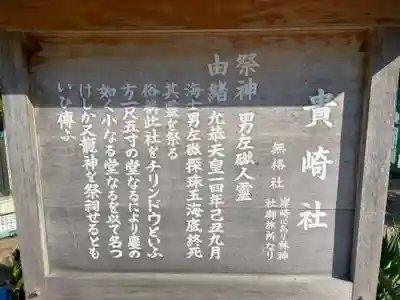 貴崎社
無格社
岸崎にあり林神
社御旅所なり
祭神 男左磯人霊
由緒 允恭天皇一四年己丑九月
海士男左磯探珠玉海底終死
其霊を祭る
俗称此社をチリンドウといふ
方一尺五寸の堂なるにより塵の
如く小なる堂なるを以て名つ
けしか又龍神を祭祠せるとも
いひ傳ふ